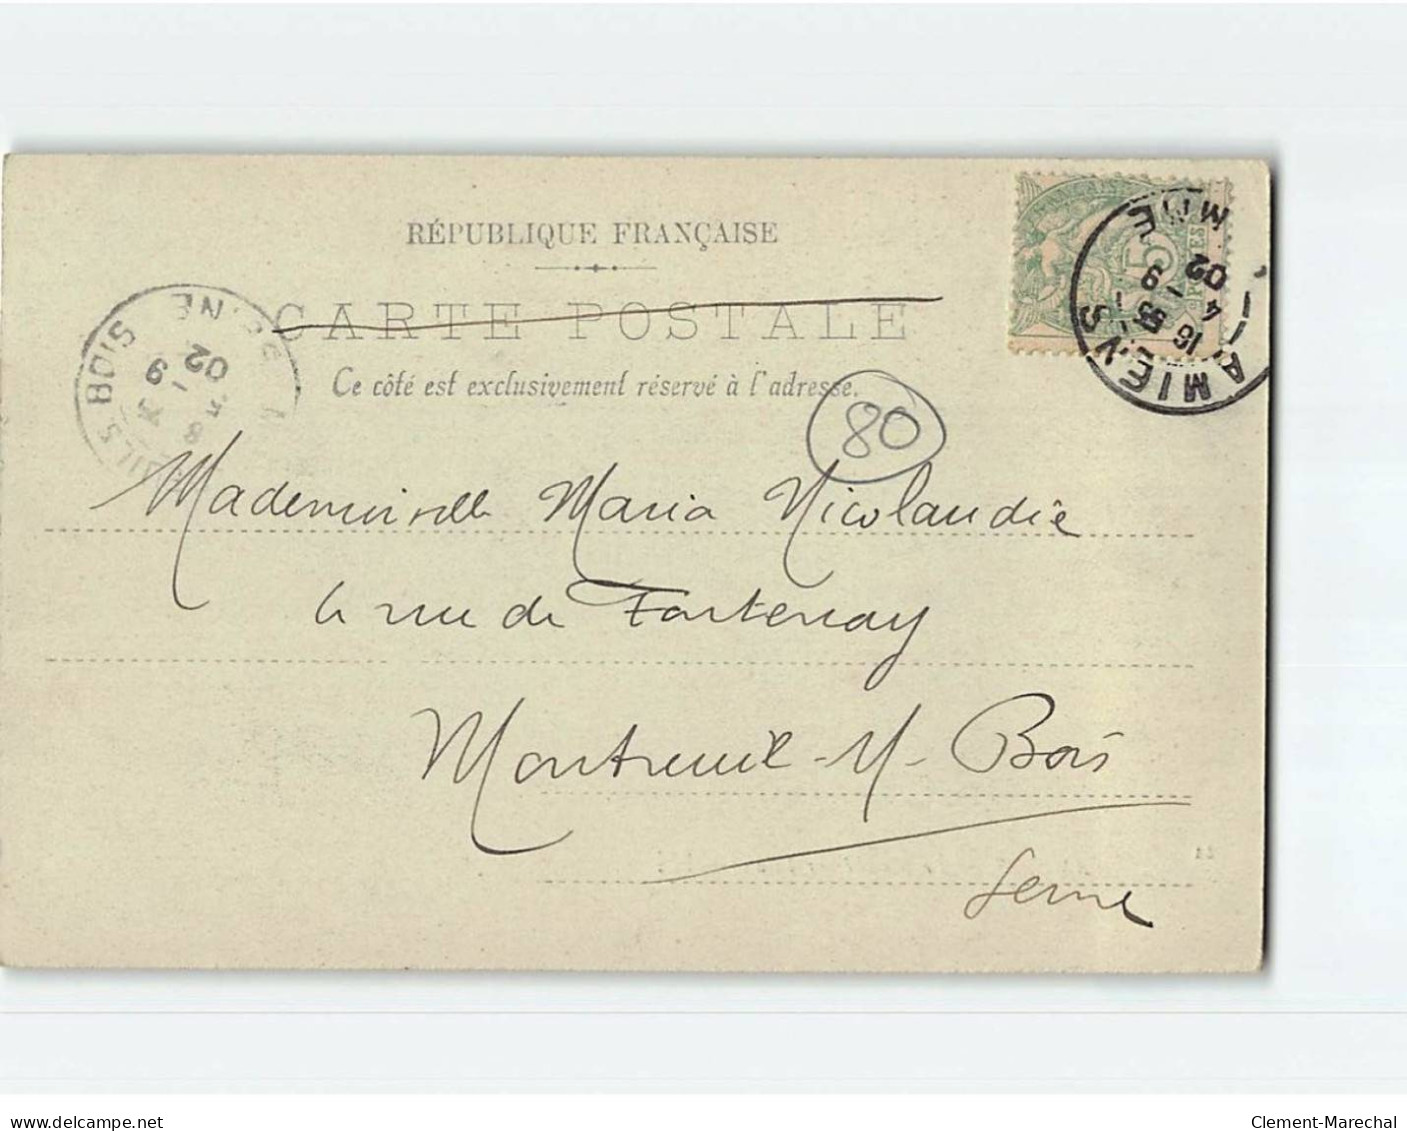 RÉPUBLIQUE FRANÇAISE
CARTE POSTALE
Ce côté est exclusivement réservé à l'adresse.
80
5
POSTES
AMIENS
16
4 -9
02
8
-9
02
BOIS
Mademoiselle Maria Nicolaudie
rue de Fontenay
Montreuil-s/-Bois
Seine
delcampe.net
Clement-Marechal